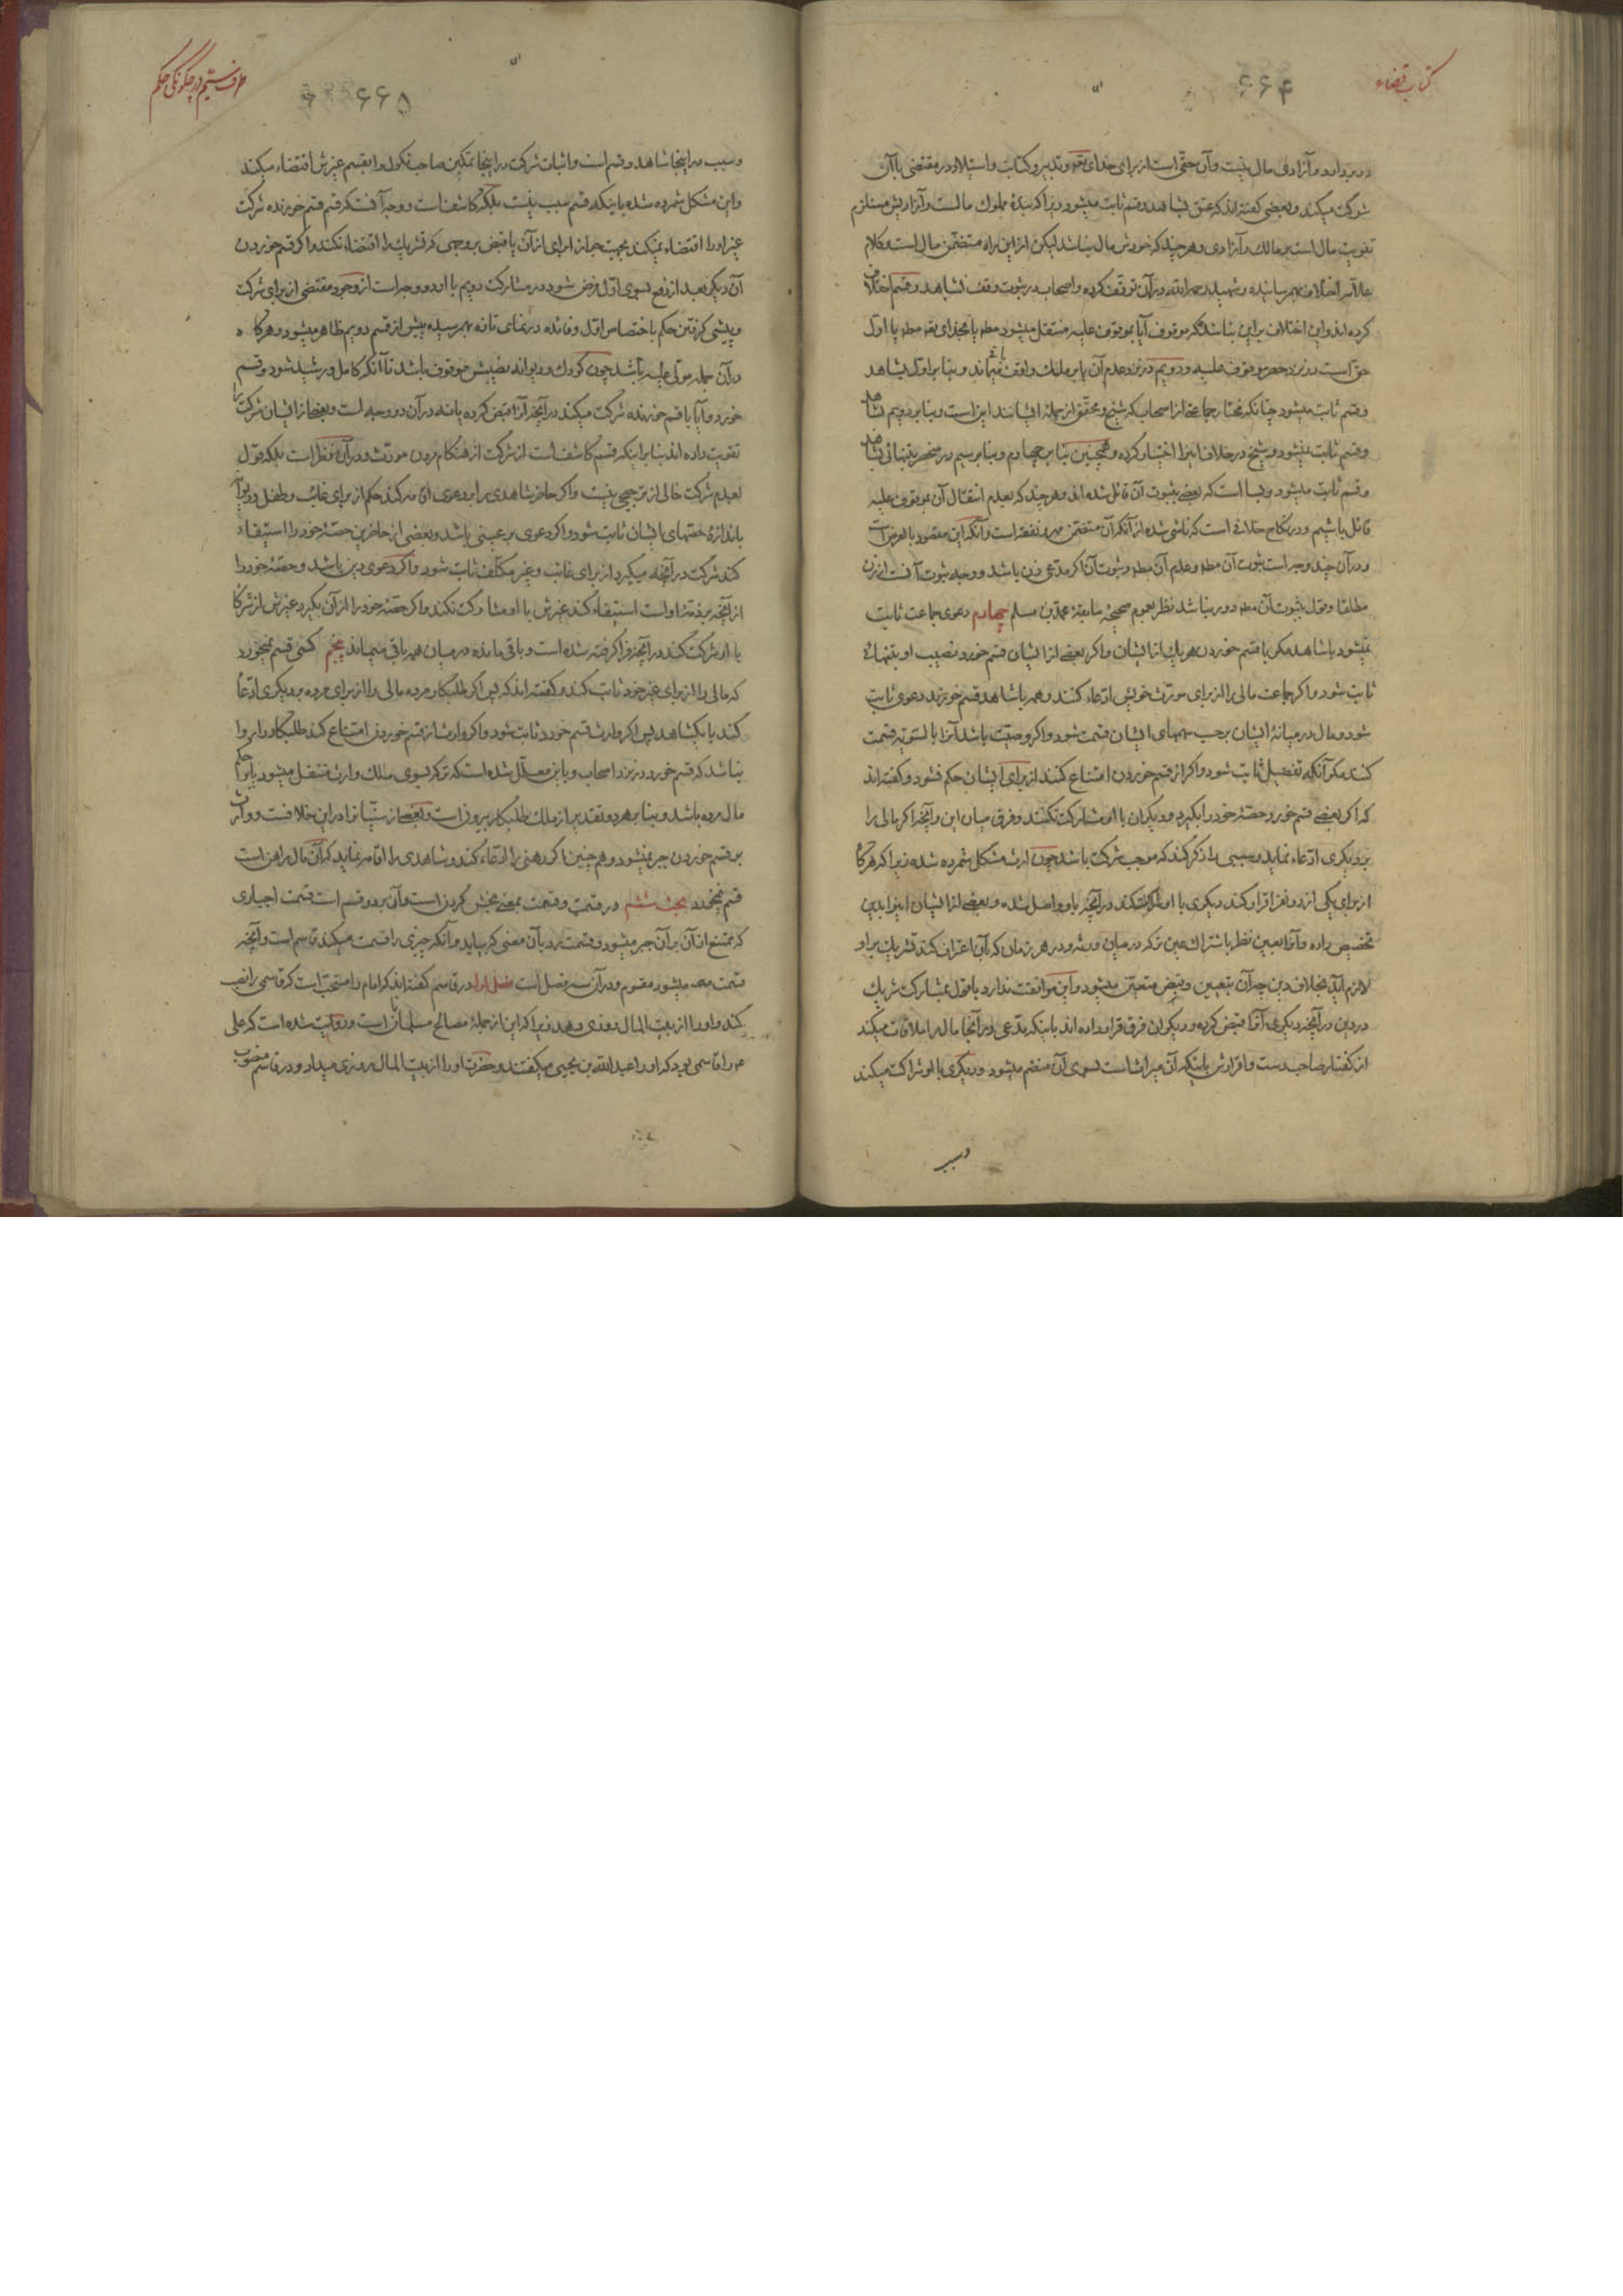 کتاب قضاء
۶۶۴
در بر دارد و آزادی مال نیست و آن حقی است از برای خدای تعه و تدبیر و کتابت و استیلاد در مقتضی با آن
شرکت میکند و بعضی گفته‌اند که عتق بشاهد و قسم ثابت میشود زیرا که بندهٔ مملوک مالست و آزادیش مستلزم
تفویت مال است بر مالک و آزادی و هر چند که خودش مال نباشد لیکن از این راه متضمن مال است و کلام
علامه اختلاف بهم رسانیده و شهید رحمه الله در آن توقف کرده و اصحاب در ثبوت وقف بشاهد و قسم اختلاف
کرده‌اند و این اختلاف بر این بنا شده که موقوف آیا بموقوف علیه منتقل میشود مطه یا بخدای تعه مطه یا اول
حق است در نزد حصر موقوف علیه و دویم در نزد عدم آن یا بر ملک واقف باقی میماند و بنا بر اول بشاهد
و قسم ثابت میشود چنانکه مختار جماعتی از اصحاب که شیخ و محقق از جملهٔ ایشانند این است و بنا بر دویم بشاهد
و قسم ثابت نمیشود و شیخ در خلاف اینرا اختیار کرده و همچنین بنا بر چهارم و بنا بر سیم در منحصر بتنهائی بشاهد
و قسم ثابت میشود و بسا است که بعضی بثبوت آن قائل شده‌اند و هر چند که بعدم انتقال آن بموقوف علیه
قائل باشیم و در نکاح خلافی است که ناشی شده از آنکه آن متضمن مهر و نفقه است و آنکه این مقصود بالعرض است
و در آن چند وجه است ثبوت آن مطه و عدم آن مطه و ثبوت آن اگر مدعی زن باشد و وجه ثبوت آنست از زن
مطلقا و قول بثبوت آن مطه دور نباشد نظر بعموم صحیحهٔ سابقهٔ محمد بن مسلم چهارم دعوی جماعت ثابت
نمیشود با شاهد مکر با قسم خوردن هر یک از ایشان و اگر بعضی از ایشان قسم خورد نصیب او بتنهائی
ثابت شود و اگر جماعت مالی را از برای مورث خویش ادعاء کنند و همه با شاهد قسم خورند دعوی ثابت
شود و مال در میانهٔ ایشان بر حسب سهمهای ایشان قسمت شود و اگر وصیت باشد آنرا بالسویه قسمت
کنند مکر آنکه تفضیل ثابت شود و اگر از قسم خوردن امتناع کنند از برای ایشان حکم نشود و گفته‌اند
که اگر بعضی قسم خورد حصهٔ خود را بگیرد و دیگران با او مشارکت نکنند و فرق میان این و آنچه اگر مالی را
بر دیگری ادعاء نماید و سببی را ذکر کند که موجب شرکت باشد چون ارث مشکل شمرده شده زیرا که هر گاه
از برای یکی از دو نفر اقرار کند دیگری با او شرکت میکند در آنچه باو واصل شده و بعضی از ایشان اینرا بدین
تخصیص داده و آنرا بعین نظر باشتراک عین ترکه در میان ورثه و در هر زمان که بآن اعتراف کند تشریک بر او
لازم آید بخلاف دین چه آن بتعیین و قبض متعین میشود و این موافقت ندارد با قول بمشارکت شریک
در دین در آنچه دیگری آنرا قبض کرده و دیگران فرق قرار داده‌اند باینکه مدعی در آنجا مال را ملاقات میکند
از گفتار صاحب دست و اقرارش باینکه آن میراث است بسوی آن منضم میشود و دیگری با او شراکت میکند
و سبب
طرف هشتم در چگونگی حکم
۶۶۵
و سبب در اینجا شاهد و قسم است و اثبات شرکت در اینجا تمکین صاحب نکول را بقسم غیرش اقتضاء میکند
و این مشکل شمرده شده باینکه قسم سبب نیست بلکه کاشف است و وجه آنست که قسم قسم خورنده شرکت
غیر او را اقتضاء نمیکند بجهت جواز ابرای از آن یا قبض بر وجهی که تشریک را اقتضاء نکند و اگر قسم خوردن
آن دیگر بعد از دفع بسوی اول فرض شود در مشارکت دویم با او دو وجه است از وجود مقتضی از برای شرکت
و پیشی گرفتن حکم باختصاص اول و فائده در نمای تازه بهم رسیده پیش از قسم دویم ظاهر میشود و هر گاه
در آن جمله مولی علیه باشد چون کودک و دیوانه نصیبش موقوف باشد تا آنکه کامل و رشید شود و قسم
خورد و آیا با قسم خورنده شرکت میکند در آنچه آنرا قبض کرده یا نه در آن دو وجه است و بعضی از ایشان شرکت را
تقویت داده‌اند بنا بر اینکه قسم کاشف است از شرکت از هنگام مردن مورث و در آن نظر است بلکه قول
بعدم شرکت خالی از ترجیحی نیست و اگر حاضر شاهدی را بر دعوی اقامه کند حکم از برای غائب و طفل و دیوانه
باندازهٔ حصتهای ایشان ثابت شود و اگر دعوی بر عینی باشد و بعضی از حاضرین حصهٔ خود را استیفاء
کند شرکت در آنچه میگیرد از برای غائب و غیر مکلف ثابت شود و اگر دعوی دین باشد و حصهٔ خود را
از آنچه بر ذمهٔ او است استیفاء کند غیرش با او مشارکت نکند و اگر حصهٔ خود را از آن بگیرد غیرش از شرکا
با او شرکت کند در آنچه فرا گرفته شده است و باقی مانده در میان همه باقی میماند پنجم کسی قسم نمیخورد
که مالی را از برای غیر خود ثابت کند و گفته‌اند که پس اگر طلبکار مرده مالی را از برای مرده بر دیگری ادعا
کند با یکشاهد پس اگر وارث قسم خورد ثابت شود و اگر وارث از قسم خوردن امتناع کند طلبکار را روا
نباشد که قسم خورد در نزد اصحاب و باین معلل شده است که ترکه بسوی ملک وارث منتقل میشود یا بر حکم
مال مرده باشد و بنا بر هر دو تقدیر از ملک طلبکار بیرون است و بعضی از سنیانرا در این خلافست و وارث
بر قسم خوردن جبر نمیشود و هم چنین اگر رهنی را ادعاء کند و شاهدی را اقامه نماید که آن مال راهن است
قسم نمیخورد بحث ششم در قسمت و قسمت بمعنی بخش کردن است و آن بر دو قسم است قسمت اجباری
که ممتنع از آن بر آن جبر میشود و قسمت رد بآن معنی که بیاید و آنکه چیزی را قسمت میکند قاسم است و آنچه
قسمت میشود مقسوم و در آن سه فصل است فصل اول در قاسم گفته‌اند که امام را مستحب است که قاسمی را نصب
کند و او را از بیت المال روزی دهد زیرا که این از جملهٔ مصالح مسلمانان است و روایت شده است که علی
ع را قاسمی بود که او را عبد الله بن یحیی میگفتند و حضرت او را از بیت المال روزی میداد و در قاسم منصوب